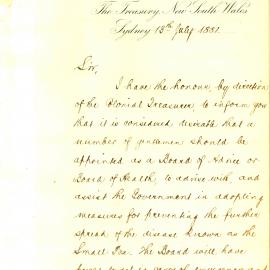 The Treasury, New South Wales
Sydney 13th July 1881.
Sir,
I have the honour, by direction
of the Colonial Treasurer to inform you
that it is considered desirable that a
number of gentlemen should be
appointed as a Board of Advice or
Board of Health, to advise with, and
assist the Government in adopting
measures for preventing the further
spread of the disease known as the
Small Pox. The Board will have